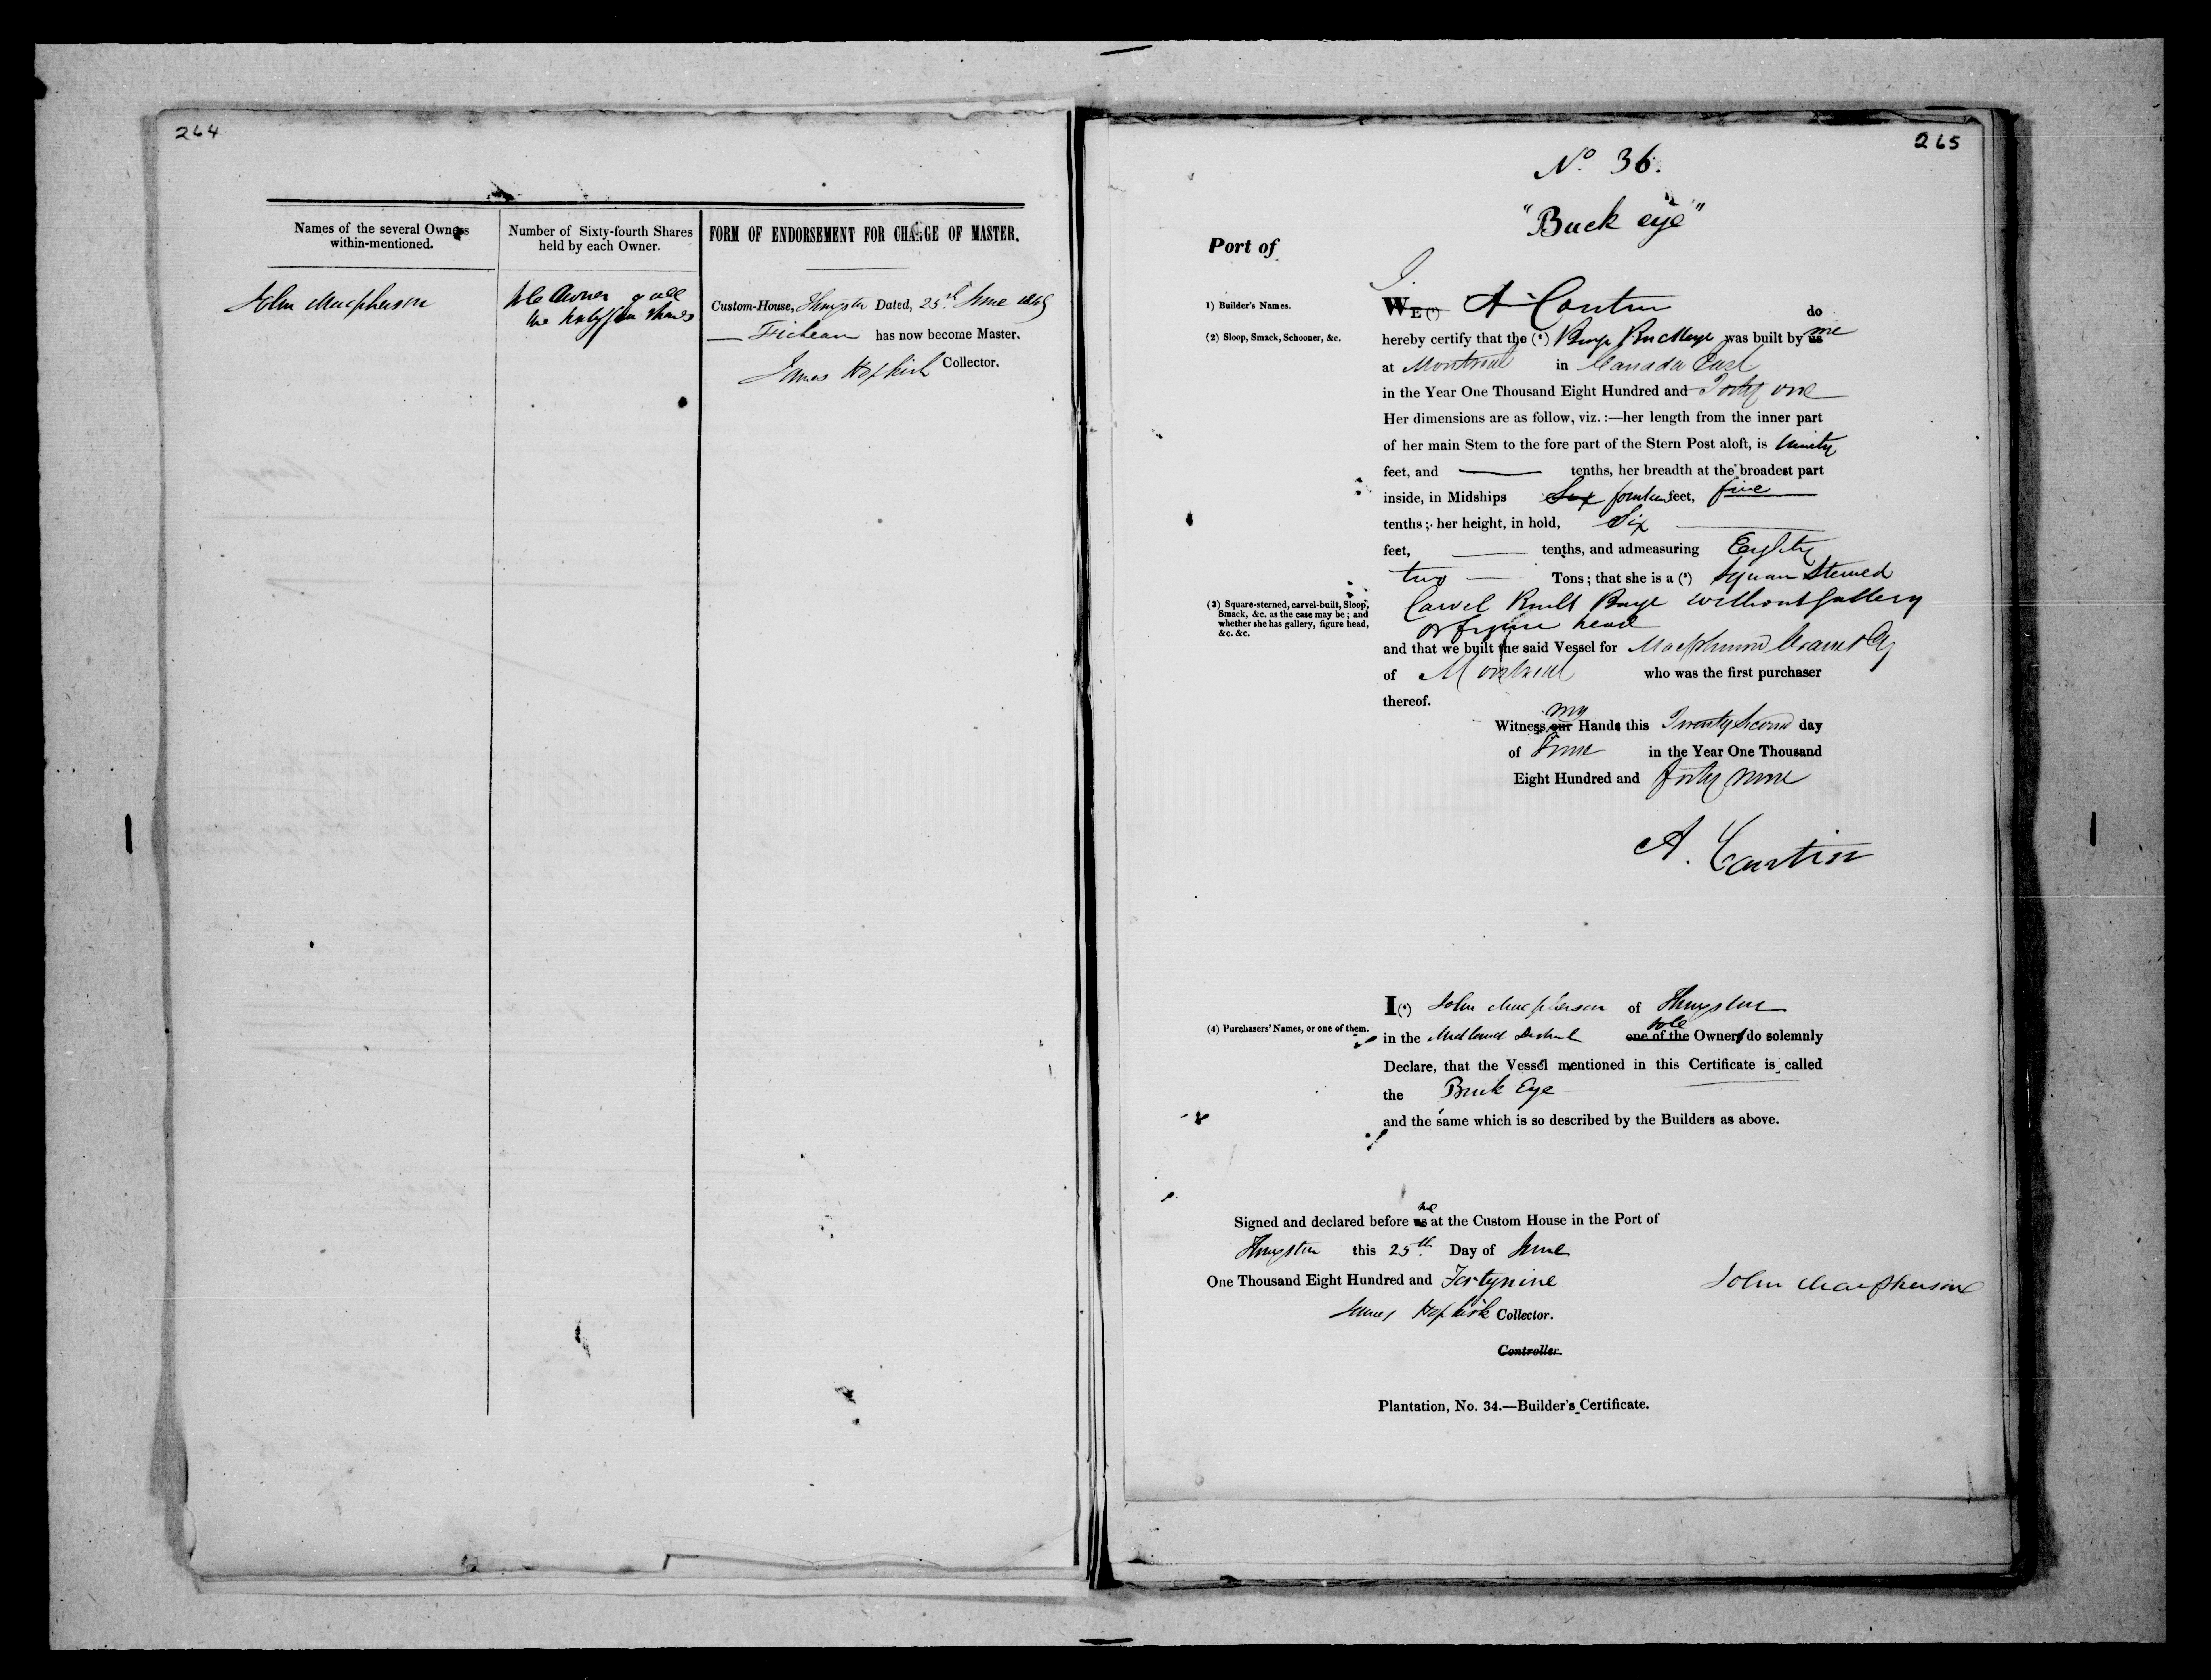 264
Names of the several Owners
within-mentioned.
Number of Sixty-fourth Shares
held by each Owner.
FORM OF ENDORSEMENT FOR CHARGE OF MASTER.
John Macpherson
Sole Owner of all
the Sixty four Shares
Custom-House, Kingston Dated, 25th June 1849
has now become Master.
James Hopkirk Collector.
265
No. 36.
"Buck eye"
Port of
I.
1) Builder's Names.
WE (1) A Cantin do
(2) Sloop, Smack, Schooner, &c.
hereby certify that the (2) Barge Buckeye was built by us me
at Montreal in Canada East
in the Year One Thousand Eight Hundred and Forty one
Her dimensions are as follow, viz.:—her length from the inner part
of her main Stem to the fore part of the Stern Post aloft, is Ninety
feet, and — tenths, her breadth at the broadest part
inside, in Midships Six fourteen feet, five
tenths; her height, in hold, Six
feet, — tenths, and admeasuring Eighty
two — Tons; that she is a (3) Square Sterned
(3) Square-sterned, carvel-built, Sloop,
Smack, &c. as the case may be; and
whether she has gallery, figure head,
&c. &c.
Carvel Built Barge without Gallery
or figure head
and that we built the said Vessel for Macpherson Crane & Cy
of Montreal who was the first purchaser
thereof.
Witness our my Hands this Twenty Second day
of June in the Year One Thousand
Eight Hundred and forty nine
A. Cantin
I (4) John Macpherson of Kingston
(4) Purchasers' Names, or one of them.
in the Midland District one of the sole Owners do solemnly
Declare, that the Vessel mentioned in this Certificate is called
the Buck Eye
and the same which is so described by the Builders as above.
Signed and declared before us me at the Custom House in the Port of
Kingston this 25th Day of June
One Thousand Eight Hundred and Forty nine
John Macpherson
James Hopkirk Collector.
Controller.
Plantation, No. 34.—Builder's Certificate.